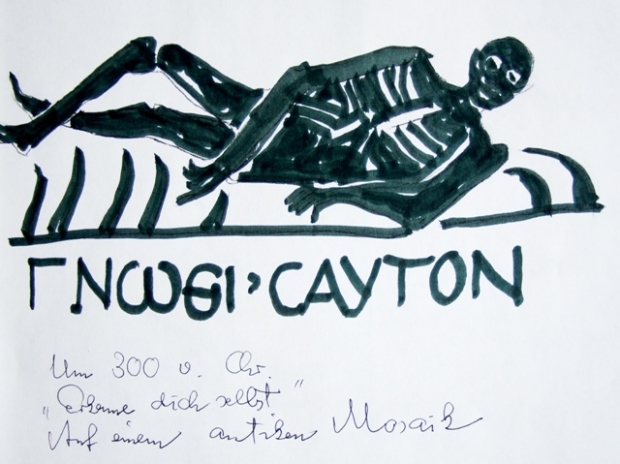 ΓΝѠΘΙ·CΑΥΤΟΝ
Um 300 v. Chr.
„Erkenne dich selbst"
Auf einem antiken Mosaik